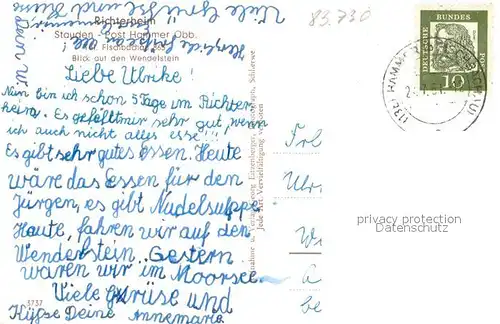 Viele Grüsse und Küsse
Dein W
Herzliche Grüße an alle
83.730
Richterheim
Stauden - Post Hammer Obb.
Tel. Fischbachau 365
Blick auf den Wendelstein
Liebe Ulrike!
Nun bin ich schon 5 Tage im Richter-
heim. Es gefällt mir sehr gut, wenn
ich auch nicht alles esse!!!
Es gibt sehr gutes Essen. Heute
wäre das Essen für den
Jürgen, es gibt Nudelsuppe
Heute, fahren wir auf den
Wendelstein. Gestern
waren wir im Moorsee.
Viele Grüse und
Küsse Deine Annemarie
3737
Jede Art Vervielfältigung verboten
DEUTSCHE
BUNDES
POST
10
HAMMER
Frl
Ulr
privacy protection
Datenschutz